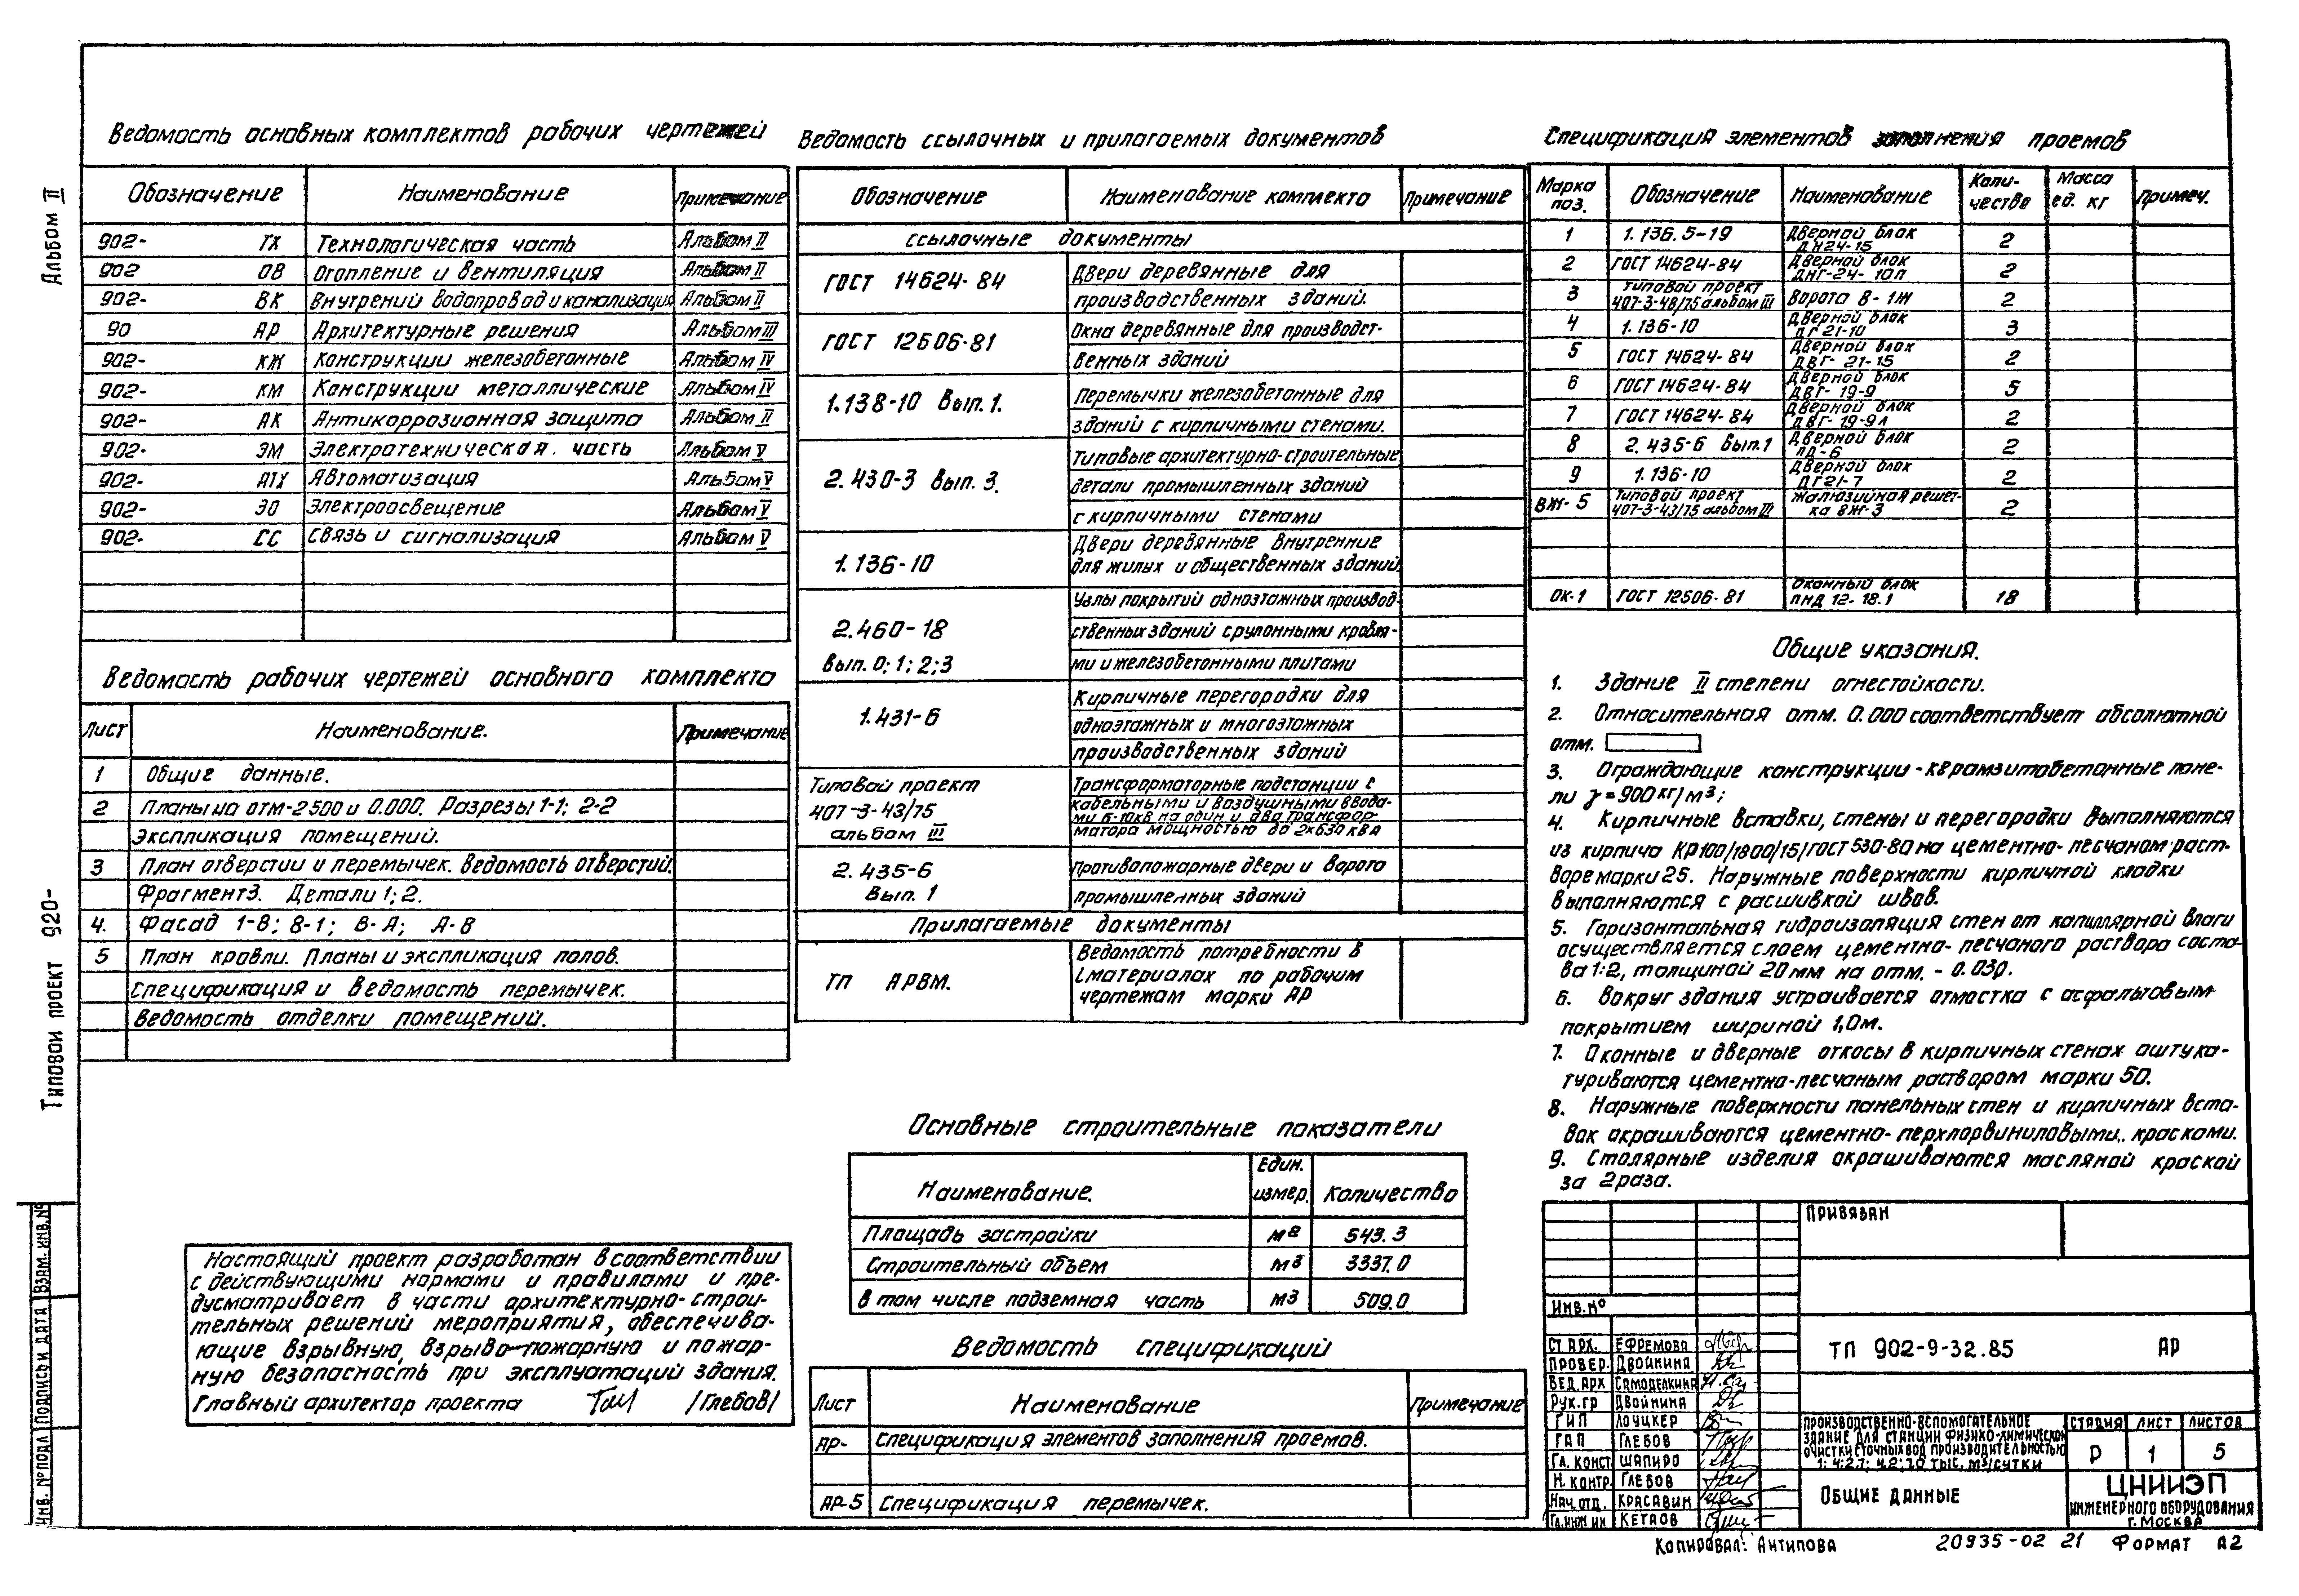 Альбом II
Типовой проект 920-
Ведомость основных комплектов рабочих чертежей
Обозначение Наименование Примечание
902- ТХ Технологическая часть Альбом II
902 ОВ Отопление и вентиляция Альбом II
902- ВК Внутрений водопровод и канализация Альбом II
90 АР Архитектурные решения Альбом III
902- КЖ Конструкции железобетонные Альбом IV
902- КМ Конструкции металлические Альбом IV
902- АК Антикоррозионная защита Альбом II
902- ЭМ Электротехническая часть Альбом V
902- АТХ Автоматизация Альбом V
902- ЭО Электроосвещение Альбом V
902- СС Связь и сигнализация Альбом V
Ведомость рабочих чертежей основного комплекта
Лист Наименование. Примечание
1 Общие данные.
2 Планы на отм-2500 и 0.000. Разрезы 1-1; 2-2
Экспликация помещений.
3 План отверстии и перемычек. Ведомость отверстий.
Фрагмент3. Детали 1; 2.
4. Фасад 1-8; 8-1; В-А; А-В
5 План кровли. Планы и экспликация полов.
Спецификация и ведомость перемычек.
Ведомость отделки помещений.
Настоящий проект разработан в соответствии
с действующими нормами и правилами и пре-
дусматривает в части архитектурно-строи-
тельных решений мероприятия, обеспечива-
ющие взрывную, взрыво-пожарную и пожар-
ную безопасность при эксплуатаций здания.
Главный архитектор проекта /Глебов/
Ведомость ссылочных и прилагаемых документов
Обозначение Наименование комплекта Примечание
Ссылочные документы
ГОСТ 14624-84 Двери деревянные для
производственных зданий.
ГОСТ 12606-81 Окна деревянные для производст-
венных зданий
1.138-10 Вып.1. Перемычки железобетонные для
зданий с кирпичными стенами.
2.430-3 Вып. 3. Типовые архитектурно-строительные
детали промышленных зданий
с кирпичными стенами
1.136-10 Двери деревянные внутренние
для жилых и общественных зданий.
2.460-18 Узлы покрытий одноэтажных производ-
ственных зданий с рулонными кровля-
Вып. 0; 1; 2; 3 ми и железобетонными плитами
1.431-6 Кирпичные перегородки для
одноэтажных и многоэтажных
производственных зданий
Типовой проект Трансформаторные подстанции с
407-3-43/75 кабельными и воздушными ввода-
ми 6-10кв на один и два трансфор-
альбом III матора мощностью до 2х630 ква
2.435-6 Противопожарные двери и ворота
Вып. 1 промышленных зданий
Прилагаемые документы
ТП АРВМ. Ведомость потребности в
материалах по рабочим
чертежам марки АР
Основные строительные показатели
Наименование. Един. измер. Количество
Площадь застройки м2 543.3
Строительный объем м3 3337.0
в том числе подземная часть м3 509.0
Ведомость спецификаций
Лист Наименование Примечание
АР- Спецификация элементов заполнения проемов.
АР-5 Спецификация перемычек.
Спецификация элементов заполнения проемов
Марка поз. Обозначение Наименование Коли-чество Масса ед. кг Примеч.
1 1.136.5-19 Дверной блок ДН24-15 2
2 ГОСТ 14624-84 Дверной блок ДНГ-24-10П 2
3 Типовой проект 407-3-48/75 альбом III Ворота В-1Ж 2
4 1.136-10 Дверной блок ДГ 21-10 3
5 ГОСТ 14624-84 Дверной блок ДВГ-21-15 2
6 ГОСТ 14624-84 Дверной блок ДВГ-19-9 5
7 ГОСТ 14624-84 Дверной блок ДВГ-19-9л 2
8 2.435-6 Вып.1 Дверной блок ПД-6 2
9 1.136-10 Дверной блок ДГ21-7 2
ВЖ-5 Типовой проект 407-3-43/75 альбом III Жалюзийная решет-ка ВЖ-3 2
ОК-1 ГОСТ 12506-81 Оконный блок ПНД 12-18.1 18
Общие указания.
1. Здание II степени огнестойкости.
2. Относительная отм. 0.000 соответствует абсолютной
отм.
3. Ограждающие конструкции - керамзитобетонные пане-
ли γ = 900 кг/м³;
4. Кирпичные вставки, стены и перегородки выполняются
из кирпича КР100/1800/15/ГОСТ 530-80 на цементно-песчаном раст-
воре марки 25. Наружные поверхности кирпичной кладки
выполняются с расшивкой швов.
5. Горизонтальная гидроизоляция стен от капиллярной влаги
осуществляется слоем цементно-песчаного раствора соста-
ва 1:2, толщиной 20мм на отм. - 0.030.
6. Вокруг здания устраивается отмостка с асфальтовым
покрытием шириной 1,0м.
7. Оконные и дверные откосы в кирпичных стенах оштука-
туриваются цементно-песчаным раствором марки 50.
8. Наружные поверхности панельных стен и кирпичных вста-
вок окрашиваются цементно-перхлорвиниловыми.. красками.
9. Столярные изделия окрашиваются масляной краской
за 2 раза.
Привязан
Инв.№
ТП 902-9-32.85 АР
Ст арх. Ефремова
Провер. Двойнина
Вед.арх Самоделкина
Рук.гр Двойнина
ГИП Лоуцкер
ГАП Глебов
Гл. конст Шапиро
Н. контр Глебов
Нач.отд. Красавин
Гл.инж ин Кетаов
Производственно-вспомогательное
здание для станции физико-химической
очистки сточных вод производительностью
1; 4; 2.7; 4.2; 7.0 тыс. м3/сутки
Стадия Лист Листов
Р 1 5
Общие данные
ЦНИИЭП
инженерного оборудования
г. Москва
Инв. № подл Подпись и дата Взам. инв. №
Копировал: Антипова 20935-02 21 Формат А2